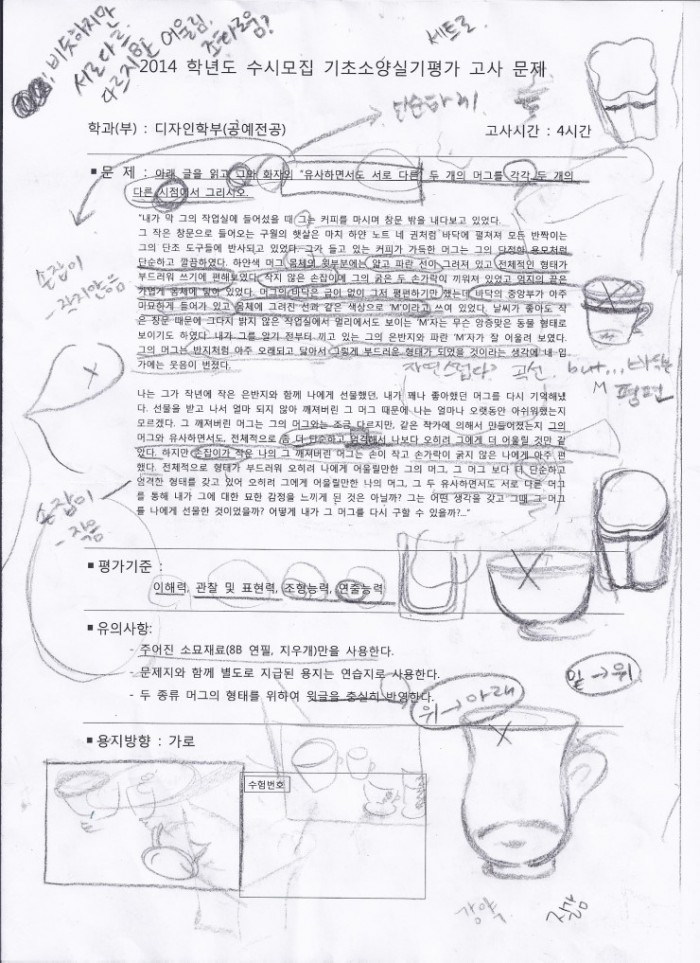 비슷하지만
서로 다름.
다르지만 어울림.
조타로움?
세트로.
2014 학년도 수시모집 기초소양실기평가 고사 문제
단순하게.
학과(부) : 디자인학부(공예전공)
고사시간 : 4시간
▪문 제 : 아래 글을 읽고 그와 화자의 "유사하면서도 서로 다른" 두 개의 머그를 각각 두 개의
다른 시점에서 그리시오.
"내가 막 그의 작업실에 들어섰을 때 그는 커피를 마시며 창문 밖을 내다보고 있었다.
그 작은 창문으로 들어오는 구월의 햇살은 마치 하얀 노트 네 권처럼 바닥에 펼쳐져 모든 반짝이는
그의 단조 도구들에 반사되고 있었다. 그가 들고 있는 커피가 가득한 머그는 그의 단정한 용모처럼
단순하고 깔끔하였다. 하얀색 머그 몸체의 윗부분에는 얇고 파란 선이 그려져 있고 전체적인 형태가
부드러워 쓰기에 편해보였다. 작지 않은 손잡이에 그의 굵은 두 손가락이 끼워져 있었고 엄지의 끝은
가볍게 몸체에 닿아 있었다. 머그의 바닥은 굽이 없이 그저 평편하기만 했는데 바닥의 중앙부가 아주
미묘하게 들어가 있고 몸체에 그려진 선과 같은 색상으로 'M'이라고 쓰여 있었다. 날씨가 좋아도 작
은 창문 때문에 그다지 밝지 않은 작업실에서 멀리에서도 보이는 'M'자는 무슨 앙증맞은 동물 형태로
보이기도 하였다. 내가 그를 알기 전부터 끼고 있는 그의 은반지와 파란 'M'자가 잘 어울려 보였다.
그의 머그는 반지처럼 아주 오래되고 닳아서 그렇게 부드러운 형태가 되었을 것이라는 생각에 내 입
가에는 웃음이 번졌다.
손잡이
- 작지않음
자연스럽다? 곡선. but... 바닥은
M 평편
나는 그가 작년에 작은 은반지와 함께 나에게 선물했던, 내가 꽤나 좋아했던 머그를 다시 기억해냈
다. 선물을 받고 나서 얼마 되지 않아 깨져버린 그 머그 때문에 나는 얼마나 오랫동안 아쉬워했는지
모르겠다. 그 깨져버린 머그는 그의 머그와는 조금 다르지만, 같은 작가에 의해서 만들어졌는지 그의
머그와 유사하면서도, 전체적으로 좀 더 단순하고 엄격해서 나보다 오히려 그에게 더 어울릴 것만 같
았다. 하지만 손잡이가 작은 나의 그 깨져버린 머그는 손이 작고 손가락이 굵지 않은 나에게 아주 편
했다. 전체적으로 형태가 부드러워 오히려 나에게 어울릴만한 그의 머그, 그 머그 보다 더 단순하고
엄격한 형태를 갖고 있어 오히려 그에게 어울릴만한 나의 머그, 그 두 유사하면서도 서로 다른 머그
를 통해 내가 그에 대한 묘한 감정을 느끼게 된 것은 아닐까? 그는 어떤 생각을 갖고 그때 그 머그
를 나에게 선물한 것이었을까? 어떻게 내가 그 머그를 다시 구할 수 있을까?..."
손잡이
- 작음
▪평가기준 :
이해력, 관찰 및 표현력, 조형능력, 연출능력
▪유의사항:
- 주어진 소묘재료(8B 연필, 지우개)만을 사용한다.
- 문제지와 함께 별도로 지급된 용지는 연습지로 사용한다.
- 두 종류 머그의 형태를 위하여 윗글을 충실히 반영한다.
위→아래
밑→위
▪용지방향 : 가로
수험번호
강약
질감